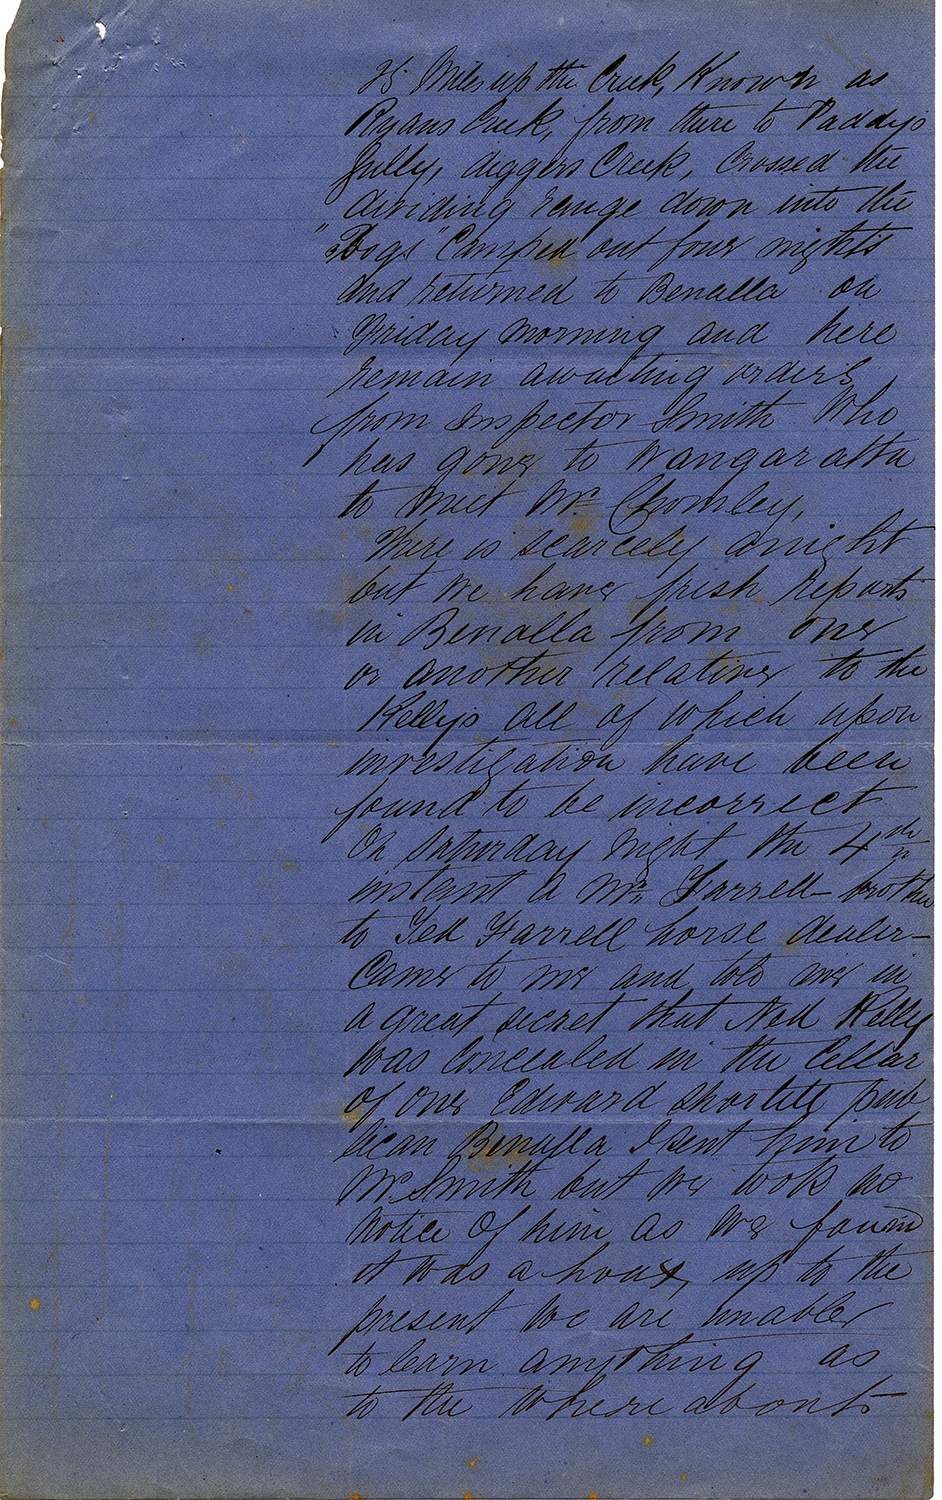 Miles up the Creek, Known as
Ryans Creek, from there to Paddys
Gully, diggers Creek, Crossed the
dividing range down into the
"Dogs" Camped out four nights
and returned to Benalla on
Friday morning and here
remain awaiting orders
from Inspector Smith Who
has gone to Wangaratta
to meet Mr Chomley,
There is scarcely a night
but we have fresh reports
in Benalla from one
or another relative to the
Kellys all of which upon
investigation have been
found to be incorrect
On Saturday night the 4th
instant a Mr Farrell brother
to Ted Farrell horse dealer
Came to me and told me in
a great secret that Ned Kelly
was Concealed in the Cellar
of one Edward Shortell pub
lican Benalla I sent him to
Mr Smith but we took no
notice of him as we found
it was a hoax, up to the
present we are unable
to learn anything as
to the whereabouts